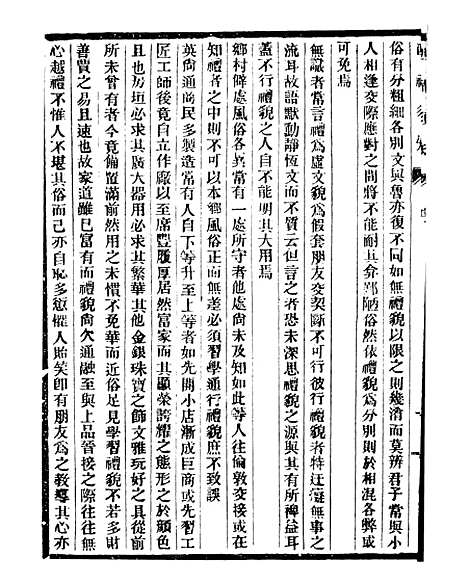 俗有分粗細各別文與魯亦復不同如無禮貌以限之則幾淆而莫辨君子常與小
人相逢交際應對之間將不能耐其弇鄙陋俗然依禮貌爲分別則於相混各弊或
可免焉
無識者常言禮爲虛文貌爲假套朋友交契斷不可行彼行禮貌者特迂濶無事之
流耳故語默動靜恆文而不質云但言之者恐未深思禮貌之源與其有所裨益耳
蓋不行禮貌之人自不能明其大用焉
鄉村僻處風俗各異常有一處所守者他處尚未及知如此等人往倫敦交接或在
知禮者之中則不可以本鄉風俗正而無差必須習學通行禮貌庶不致誤
英尚通商民多製造常有人自下等升至上等者如先開小店漸成巨商或先習工
匠工師後竟自立作廠以至席豐履厚居然富家而其顯榮誇耀之態形之於顏色
且也房垣必求其廣大器用必求其繁華其他金銀珠寶之飾文雅玩好之具從前
所未曾有者今竟備置滿前然用之未慣不免華而近俗足見學習禮貌不若多財
善賈之易且速也故家道雖已富有而禮貌尚欠通融至與上品晉接之際往往無
心越禮不惟人不堪其俗而己亦自恥多愆懼人貽笑卽有朋友爲之教導其心亦